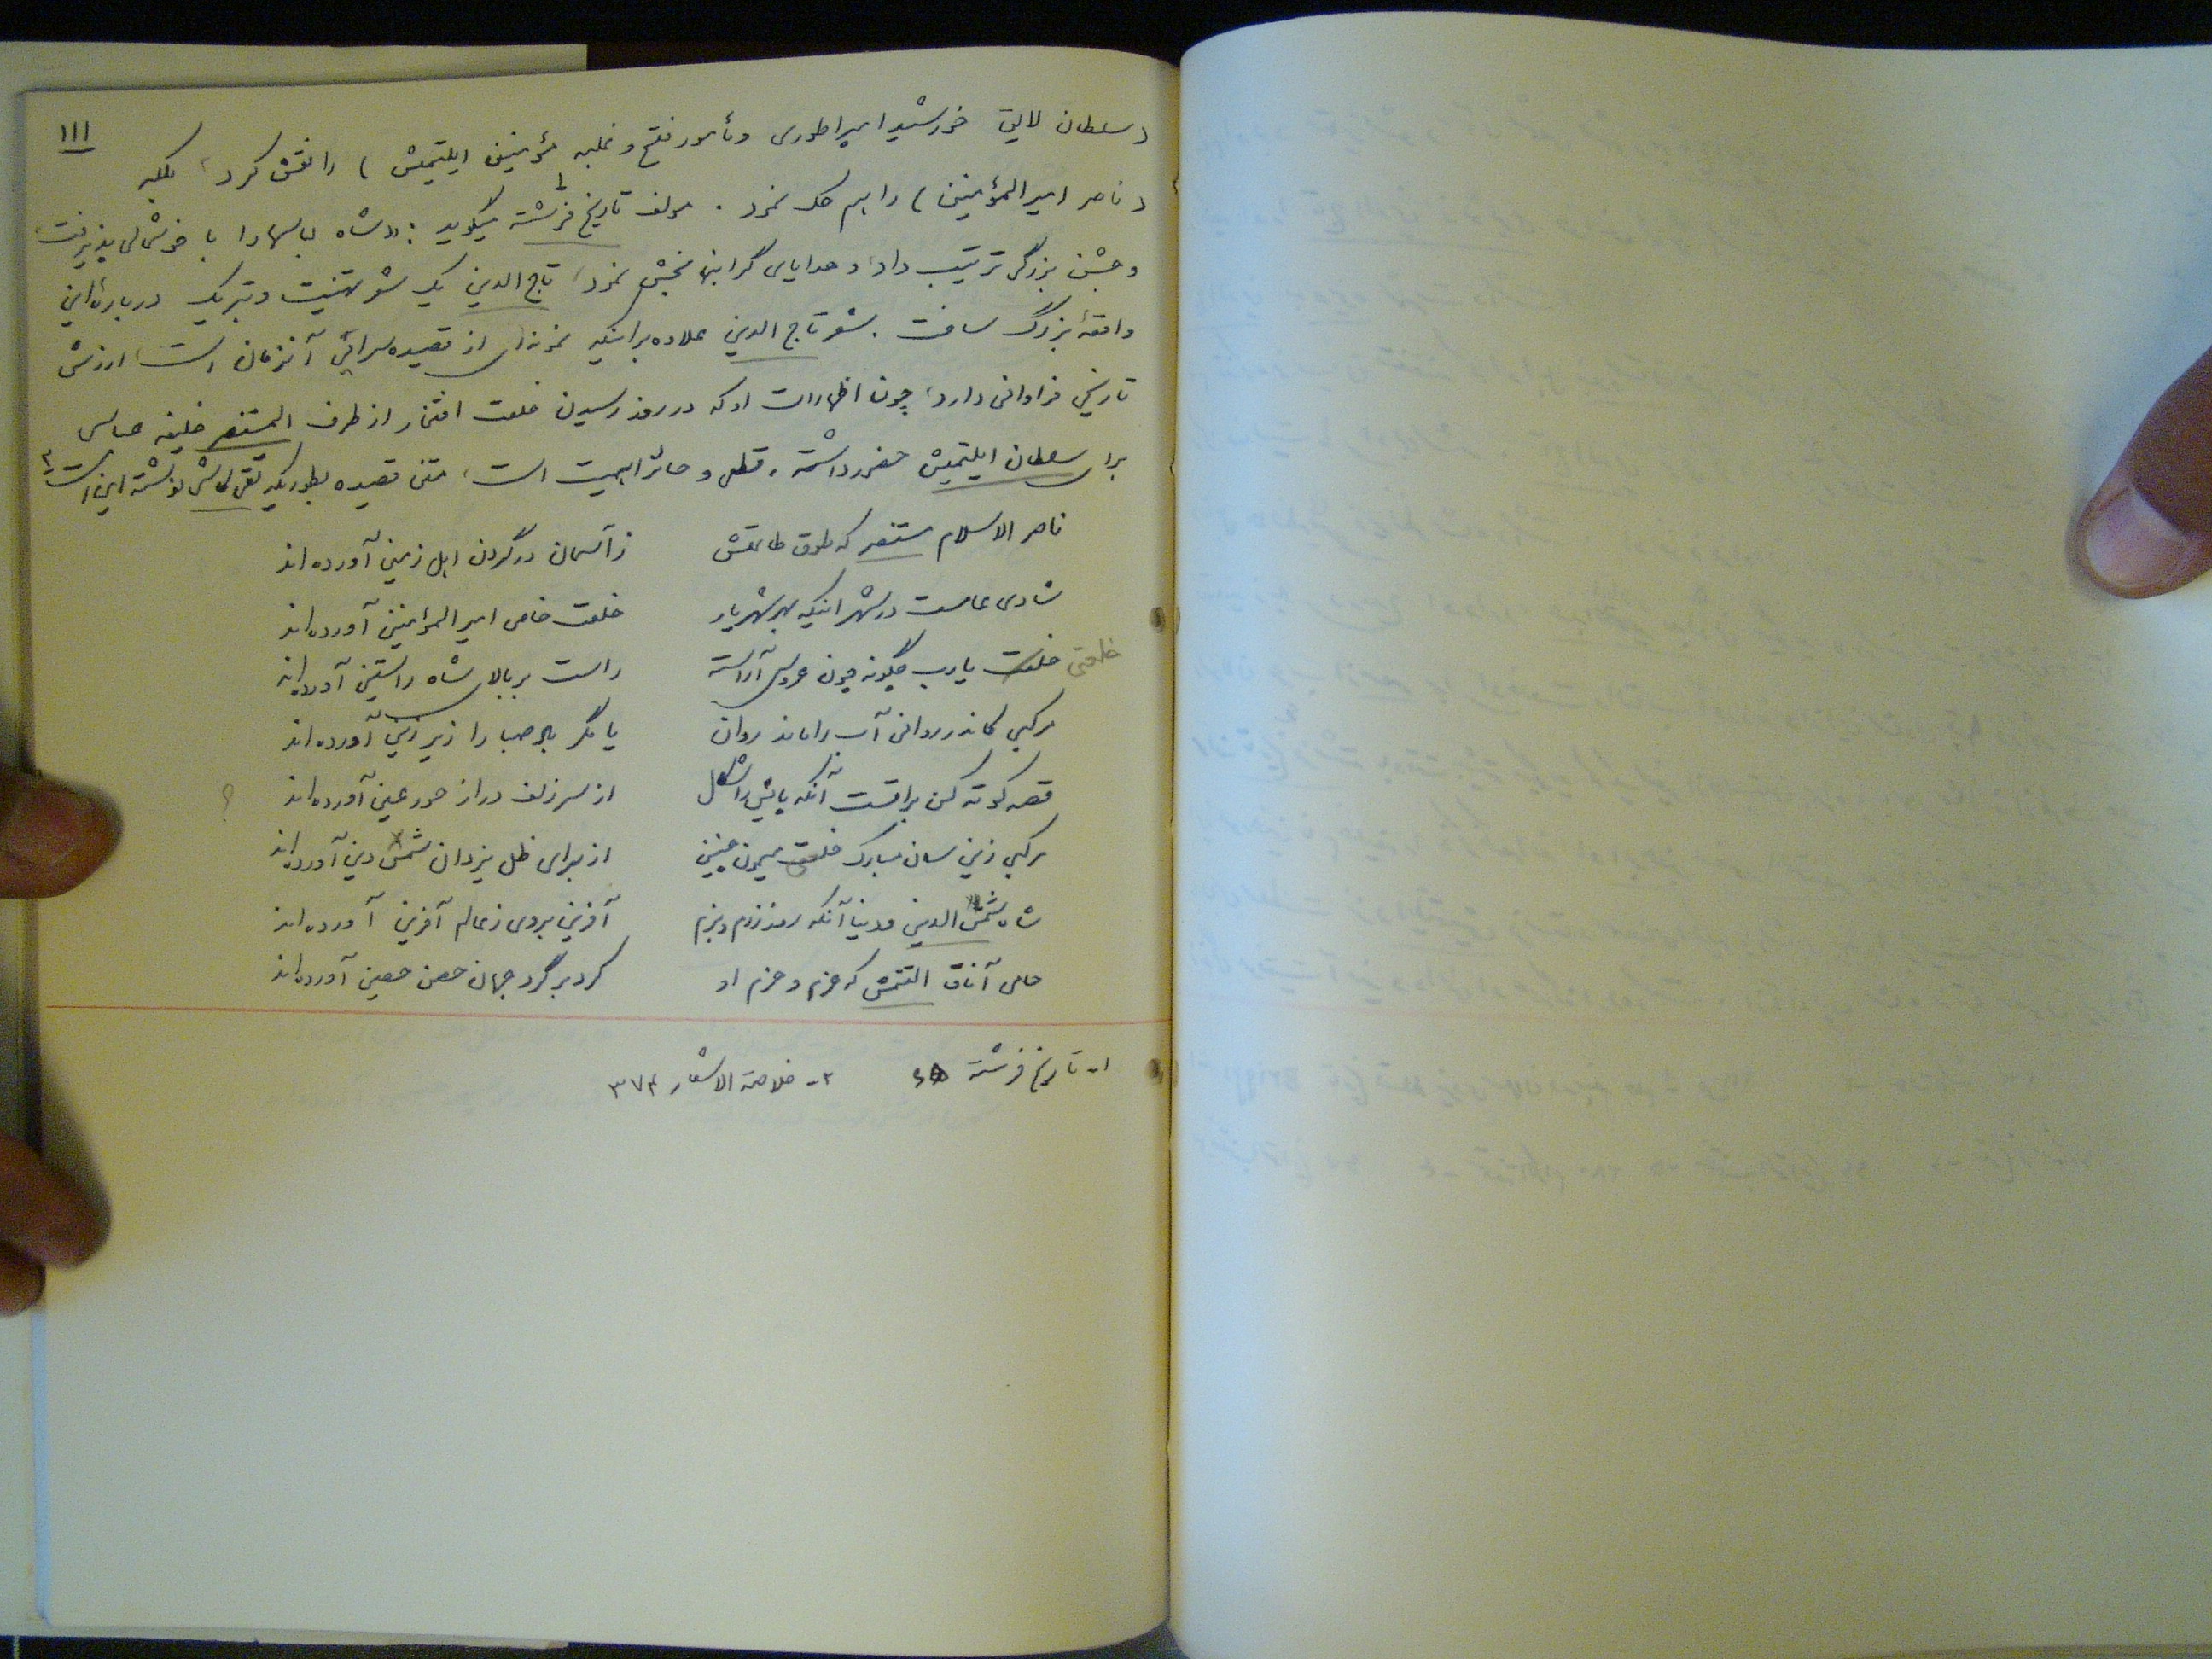 ۱۱۱
(سلطان لایق خورشید امپراطوری و مأمور فتح و غلبه مؤمنین ایلتیمش) را نقش کرد، بلکه
(ناصر امیرالمؤمنین) را هم حک نمود. مولف تاریخ فرشته۱ میگوید: «شاه لباسها را با خوشحالی پذیرفت،
و جشن بزرگی ترتیب داد، و هدایای گرانبها بخش نمود، تاج الدین یک شعر تهنیت و تبریک درباره این
واقعهٔ بزرگ ساخت. شعر تاج الدین علاوه بر اینکه نمونه‌ای از قصیده سرائی آنزمان است، ارزش
تاریخی فراوانی دارد، چون اظهارات او که در روز رسیدن خلعت افتخار از طرف المستنصر خلیفه عباسی
برای سلطان ایلتیمش حضور داشته، قطعی و حائز اهمیت است، متن قصیده بطوریکه تقی کاشی نوشته این است۲
ناصر الاسلام مستنصر که طوق طاعتش زآسمان در گردن اهل زمین آورده‌اند
شادی عامست در شهر اینکه بهر شهریار خلعت خاص امیرالمؤمنین آورده‌اند
خلعتی خلعت یارب چگونه چون عروس آراسته راست بر بالای شاه راستین آورده‌اند
مرکبی کاندر روانی آب را ماند روان یا مگر باد صبا را زیر زین آورده‌اند
قصه کوته کن براقست آنکه پایش را شکل از سر زلف دراز حور عین آورده‌اند ؟
مرکبی زین سان مبارک خلعت میمون چنین از برای ظل یزدان شمس دین آورده‌اند
شاه شمس الدین و دنیا آنکه روز رزم و بزم آفرین بروی ز عالم آفرین آورده‌اند
حامی آفاق التتمش که عزم و حزم او گرد بر گرد جهان حصن حصین آورده‌اند
۱- تاریخ فرشته ۶۵ ۲- خلاصة الاشعار ۳۷۴